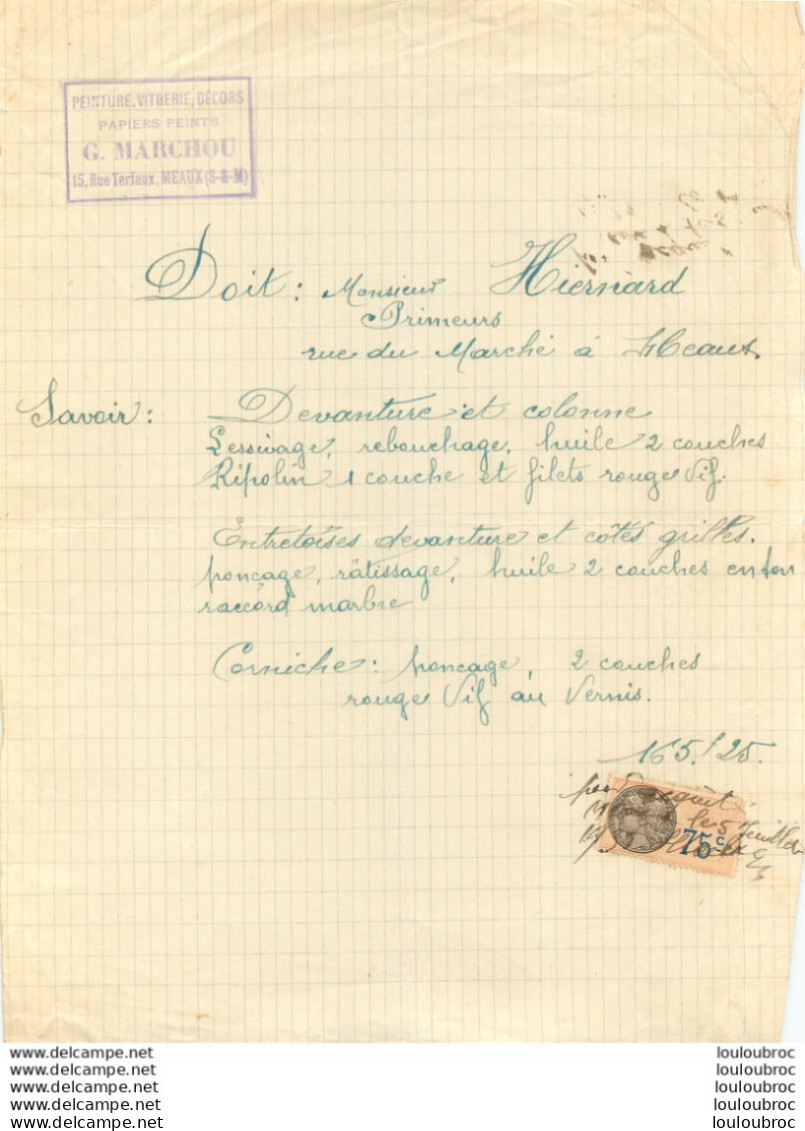 PEINTURE, VITRERIE, DÉCORS
PAPIERS PEINTS
G. MARCHOU
15, Rue Terfaux, MEAUX (S-&-M)
Doit: Monsieur Hiernard
Primeurs
rue du Marché à Meaux.
Savoir: Devanture et colonne
Lessivage, rebouchage, huile 2 couches
Ripolin 1 couche et filets rouge Vif.
Entretoises devanture et cotés grilles.
ponçage, râtissage, huile 2 couches en ton
raccord marbre
Corniche: poncage, 2 couches
rouge Vif au Vernis.
165.f25.
pour acquit
le 5 Juillet
75c
www.delcampe.net
www.delcampe.net
www.delcampe.net
www.delcampe.net
www.delcampe.net
louloubroc
louloubroc
louloubroc
louloubroc
louloubroc